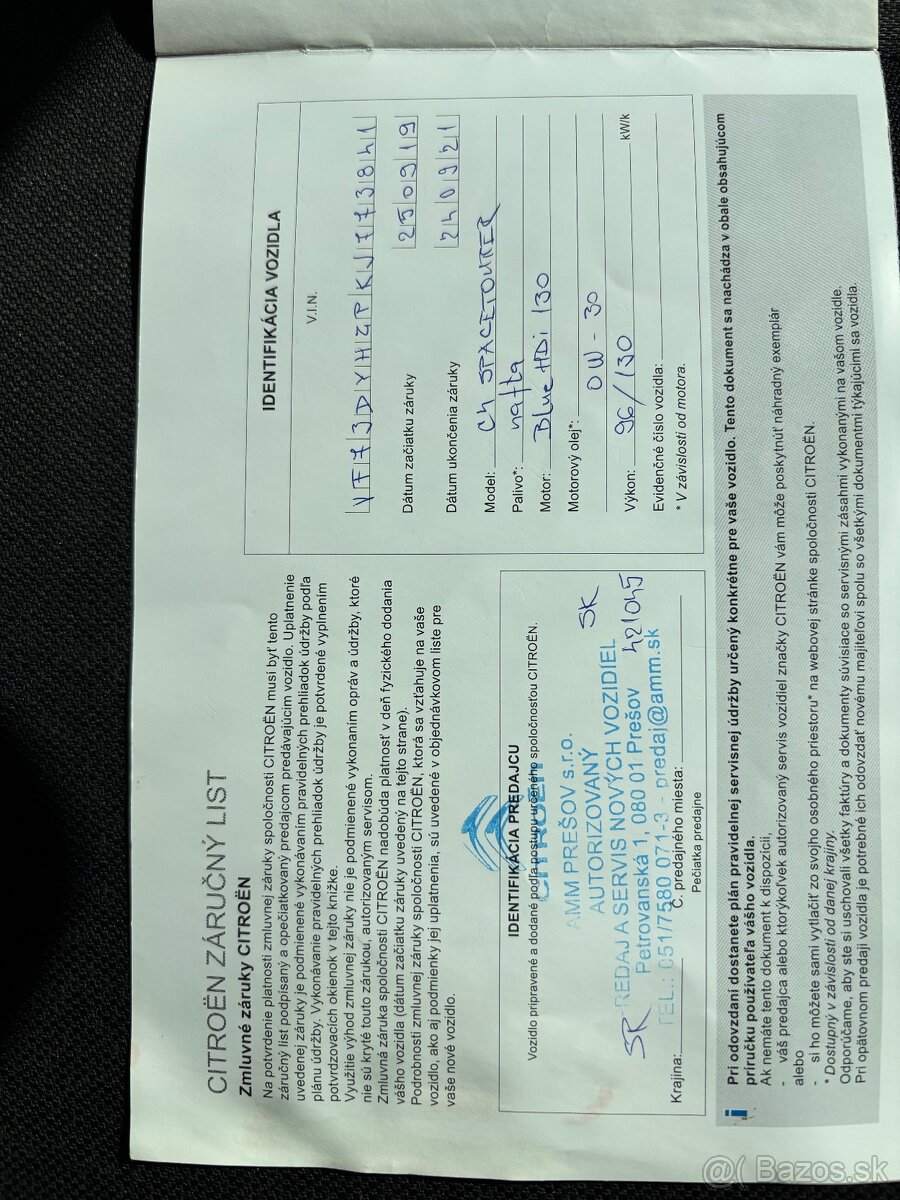 CITROËN ZÁRUČNÝ LIST
Zmluvné záruky CITROËN
Na potvrdenie platnosti zmluvnej záruky spoločnosti CITROËN musí byť tento
záručný list podpísaný a opečiatkovaný predajcom predávajúcim vozidlo. Uplatnenie
uvedenej záruky je podmienené vykonávaním pravidelných prehliadok údržby podľa
plánu údržby. Vykonávanie pravidelných prehliadok údržby je potvrdené vyplnením
potvrdzovacích okienok v tejto knižke.
Využitie výhod zmluvnej záruky nie je podmienené vykonaním opráv a údržby, ktoré
nie sú kryté touto zárukou, autorizovaným servisom.
Zmluvná záruka spoločnosti CITROËN nadobúda platnosť v deň fyzického dodania
vášho vozidla (dátum začiatku záruky uvedený na tejto strane).
Podrobnosti zmluvnej záruky spoločnosti CITROËN, ktorá sa vzťahuje na vaše
vozidlo, ako aj podmienky jej uplatnenia, sú uvedené v objednávkovom liste pre
vaše nové vozidlo.
IDENTIFIKÁCIA PREDAJCU
Vozidlo pripravené a dodané podľa postupu určeného spoločnosťou CITROËN.
CITROËN
AMM PREŠOV s.r.o.
AUTORIZOVANÝ
PREDAJ A SERVIS NOVÝCH VOZIDIEL
Petrovanská 1, 080 01 Prešov
TEL.: 051/7580 071-3 - predaj@amm.sk
SK
SK 421045
Krajina:
Č. predajného miesta:
Pečiatka predajne
IDENTIFIKÁCIA VOZIDLA
V.I.N.
Dátum začiatku záruky 250919
Dátum ukončenia záruky 240921
Model: C4 SPACETOURER
Palivo*: nafta
Motor: Blue HDi 130
Motorový olej*:
0W-30
Výkon: 96/130 kW/k
Evidenčné číslo vozidla:
* V závislosti od motora.
Pri odovzdaní dostanete plán pravidelnej servisnej údržby určený konkrétne pre vaše vozidlo. Tento dokument sa nachádza v obale obsahujúcom
príručku používateľa vášho vozidla.
Ak nemáte tento dokument k dispozícii,
- váš predajca alebo ktorýkoľvek autorizovaný servis vozidiel značky CITROËN vám môže poskytnúť náhradný exemplár
alebo
- si ho môžete sami vytlačiť zo svojho osobného priestoru* na webovej stránke spoločnosti CITROËN.
* Dostupný v závislosti od danej krajiny.
Odporúčame, aby ste si uschovali všetky faktúry a dokumenty súvisiace so servisnými zásahmi vykonanými na vašom vozidle.
Pri opätovnom predaji vozidla je potrebné ich odovzdať novému majiteľovi spolu so všetkými dokumentmi týkajúcimi sa vozidla.
@( Bazos.sk